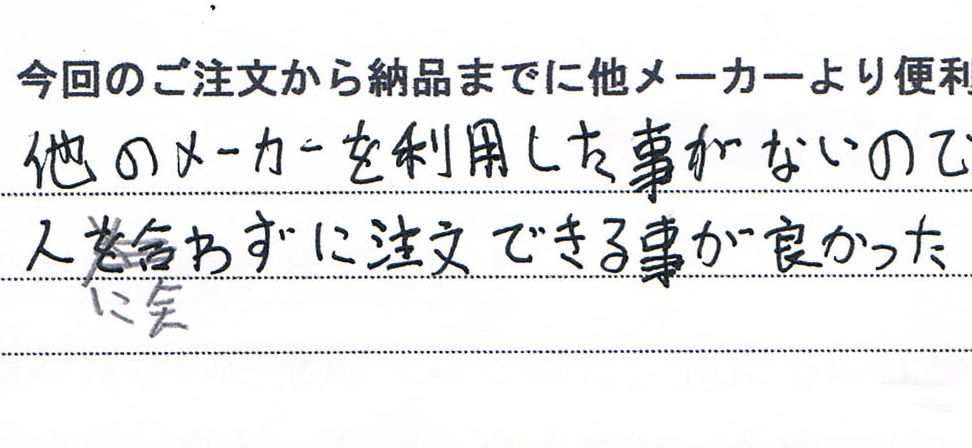 今回のご注文から納品までに他メーカーより便利
他のメーカーを利用した事がないので
人を合わずに注文できる事が良かった
に矢